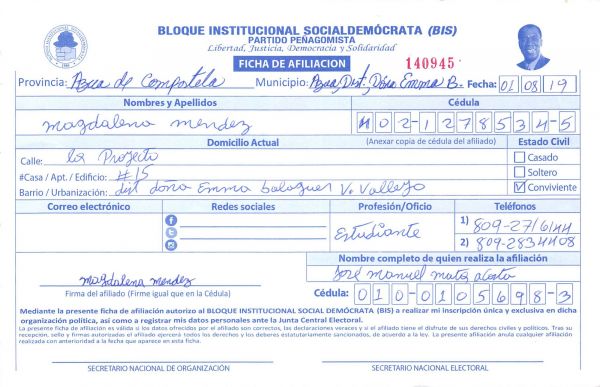 BLOQUE INSTITUCIONAL SOCIALDEMÓCRATA (BIS)
PARTIDO PEÑAGOMISTA
Libertad, Justicia, Democracia y Solidaridad
FICHA DE AFILIACION 140945
Provincia: Azua de Compostela Municipio: Azua, Dist, Doña Emma B. Fecha: 01 08 19
Nombres y Apellidos Cédula
magdalena mendez 402-1278534-5
Domicilio Actual (Anexar copia de cédula del afiliado) Estado Civil
Calle: la Proyecto Casado
#Casa / Apt. / Edificio: #15 Soltero
Barrio / Urbanización: dist doña Emma balaguer V. Vallejo Conviviente
Correo electrónico Redes sociales Profesión/Oficio Teléfonos
Estudiante 1) 809-2716144
2) 809-2834408
Nombre completo de quien realiza la afiliación
José manuel matos acosta
magdalena mendez
Firma del afiliado (Firme igual que en la Cédula) Cédula: 010-0105698-3
Mediante la presente ficha de afiliación autorizo al BLOQUE INSTITUCIONAL SOCIAL DEMÓCRATA (BIS) a realizar mi inscripción única y exclusiva en dicha
organización política, así como a registrar mis datos personales ante la Junta Central Electoral.
La presente ficha de afiliación es válida si los datos ofrecidos por el afiliado son correctos, las declaraciones veraces y si el afiliado tiene el disfrute de sus derechos civiles y políticos. Tras su
recepción, sello y firmas autorizadas el afiliado ejercerá todos los derechos y los deberes estatutariamente sancionados, de acuerdo a la ley. La presente afiliación anula cualquier afiliación
realizada con anterioridad a la fecha que aparece en esta ficha.
SECRETARIO NACIONAL DE ORGANIZACIÓN SECRETARIO NACIONAL ELECTORAL